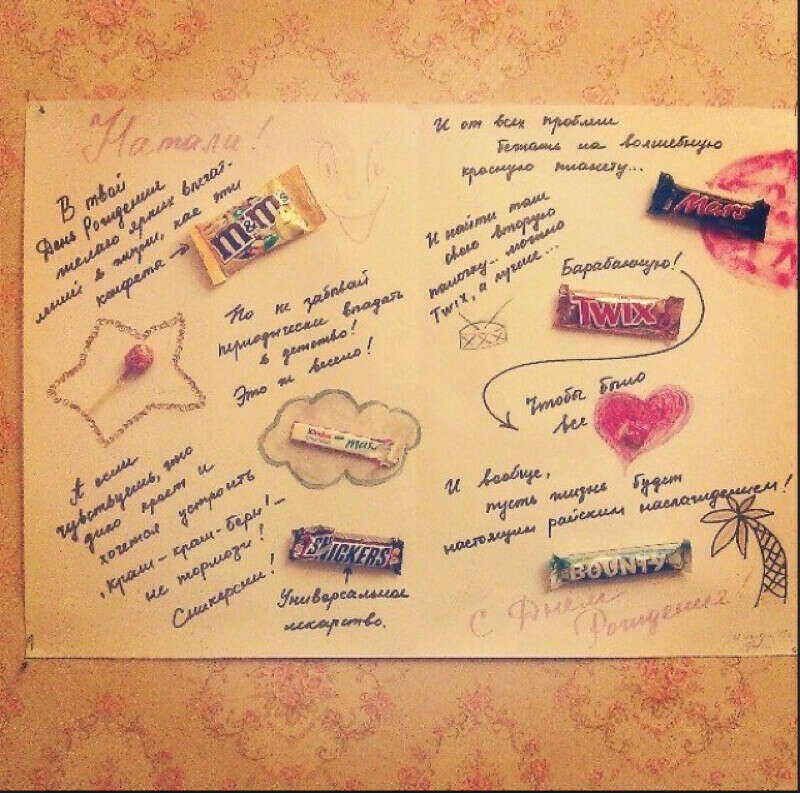 Натали!
В твой
День Рождения
желаю ярких впечат-
лений в жизни, как эти
конфета →
m&m's
Но не забывай
периодически впадать
в детство!
Это ж весело!
Kinder
maxi
А если
чувствуешь, что
дико прет и
хочется устроить
"Краш-краш-бери!"...
не тормози!
Сникерсни!
SNICKERS
Универсальное
лекарство.
И от всех проблем
бежать на волшебную
красную планету...
Mars
И найти там
свою вторую
палочку... можно
Twix, а лучше...
Барабанную!
TWIX
Чтобы было
все
И вообще,
пусть жизнь будет
настоящим райским наслаждением!
BOUNTY
С Днем
Рождения!